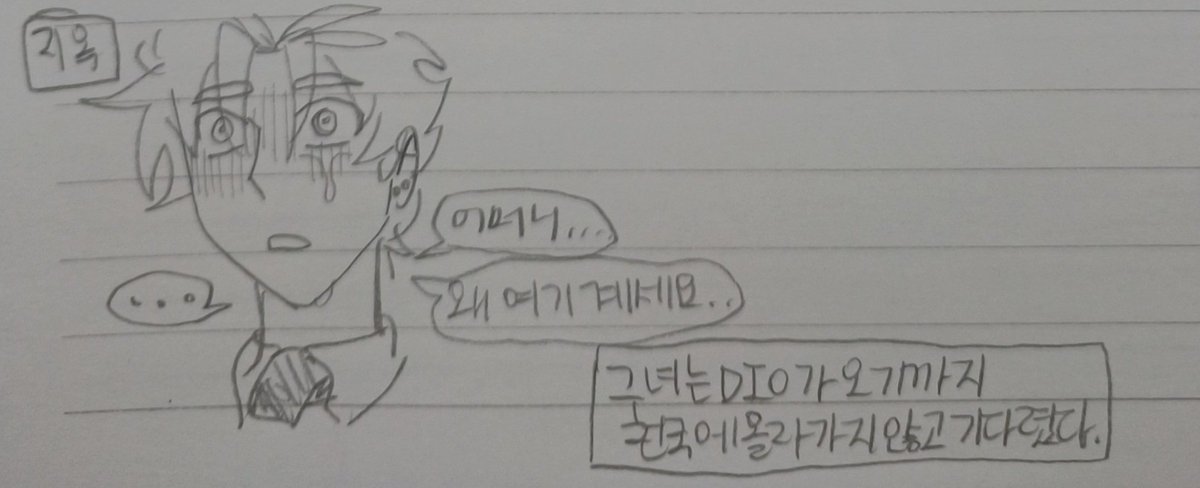 지옥
어머니...
...
왜 여기 계세요..
그녀는 DIO가 오기까지
천국에 올라가지 않고 기다렸다.